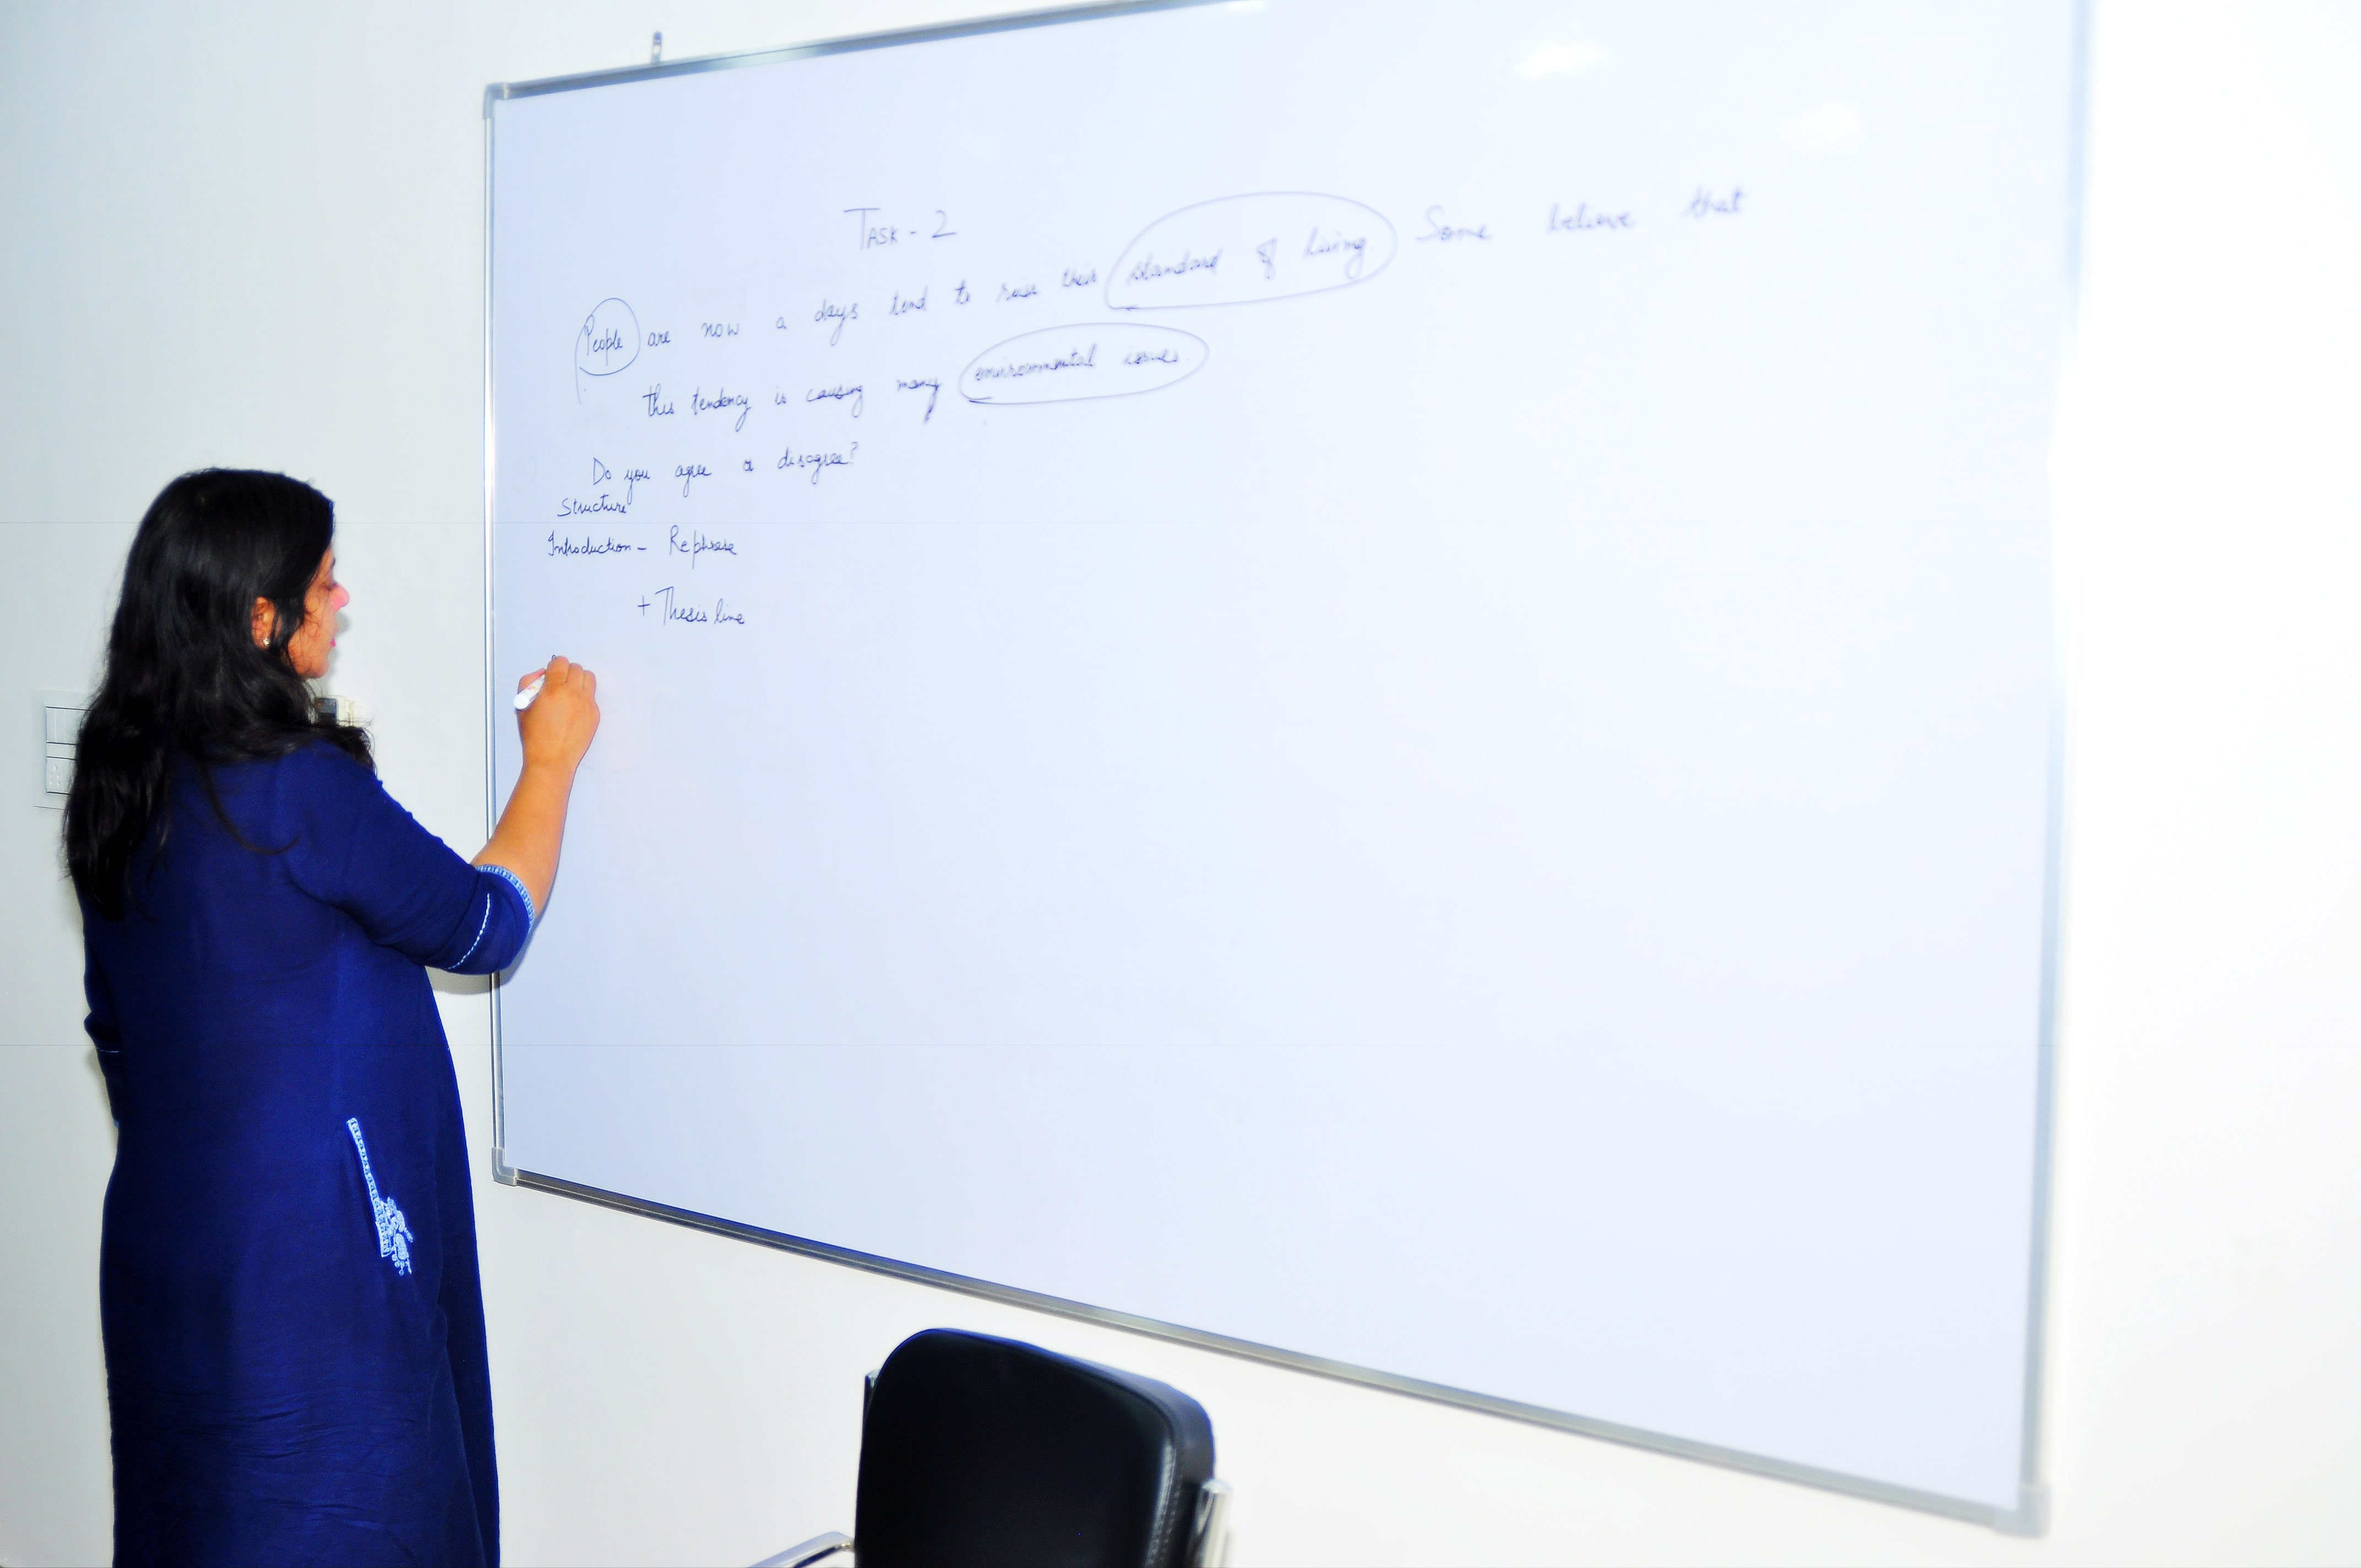 TASK - 2
People are now a days tend to raise their standard of living. Some believe that
this tendency is causing many environmental issues.
Do you agree or disagree?
Structure
Introduction - Rephrase
+ Thesis line